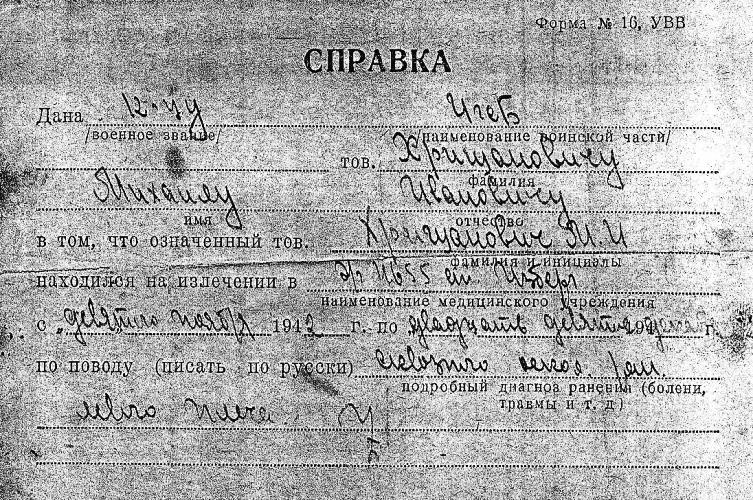 Форма № 16, УВВ
СПРАВКА
Дана
/военное звание/ /наименование воинской части/
тов. Хрищановичу
фамилия
Михаилу Ивановичу
имя отчество
в том, что означенный тов. Хрищанович М. И
фамилия и инициалы
находился на излечении в
наименование медицинского учреждения
с „девятого ноября 1942 г. по двадцать 194 г.
по поводу (писать по русски) сквозного оскол. ран.
подробный диагноз ранения (болезни,
травмы и т. д)
левого плеча.